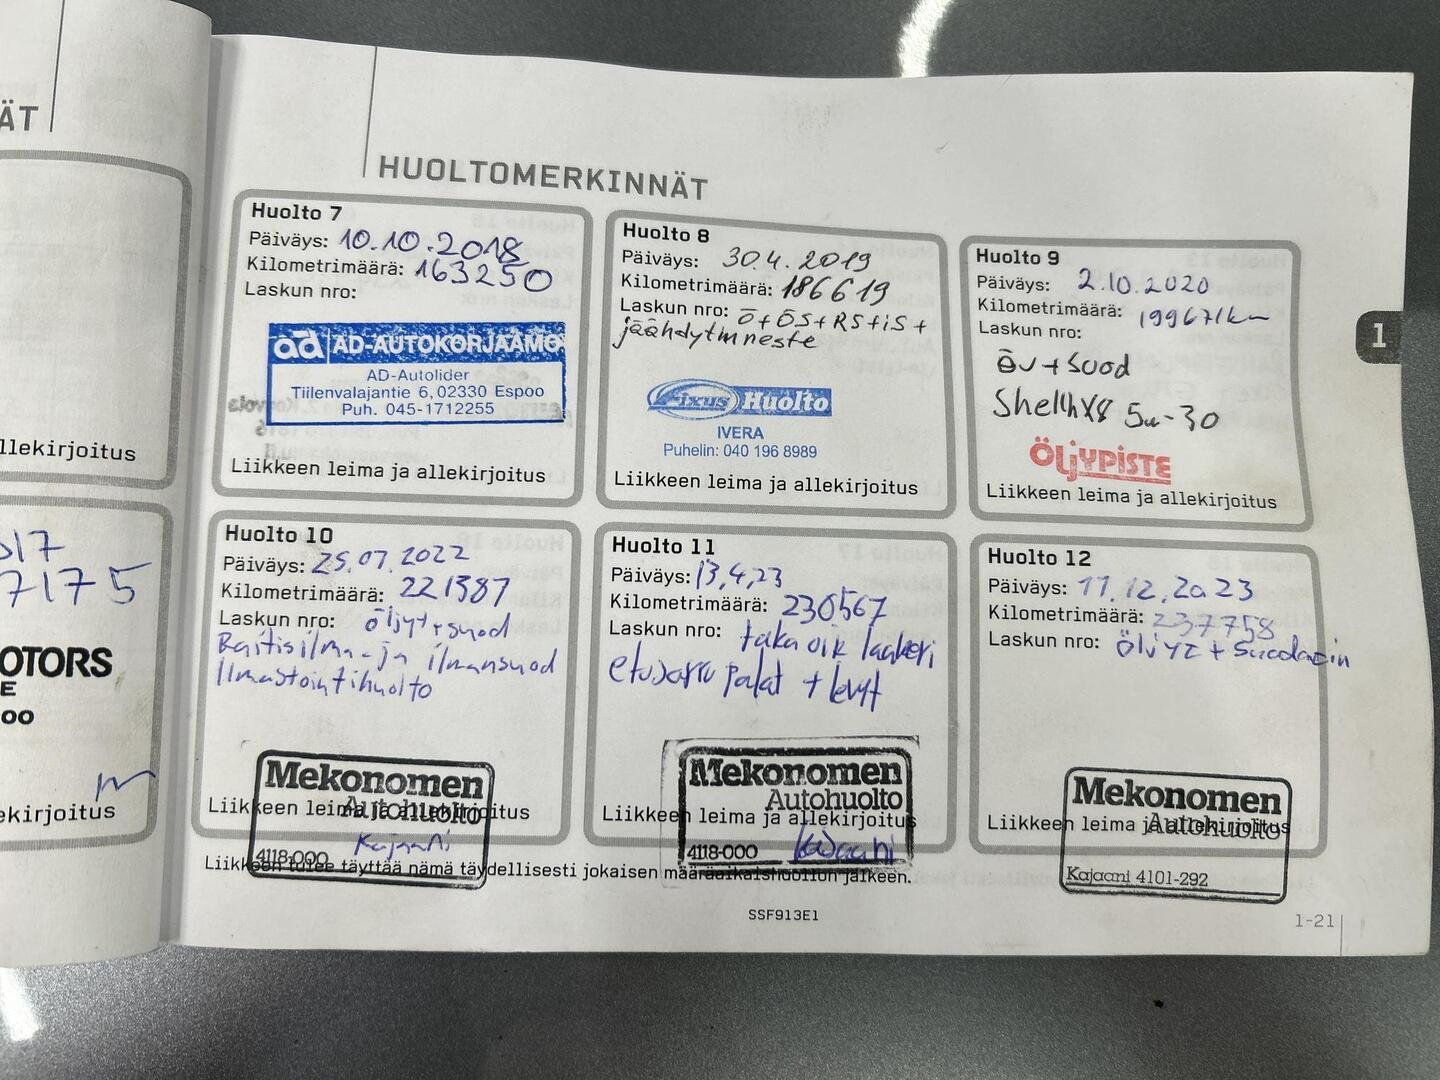 ÄT
HUOLTOMERKINNÄT
Huolto 7
Päiväys: 10.10.2018
Kilometrimäärä: 163250
Laskun nro:
ad AD-AUTOKORJAAMO
AD-Autolider
Tiilenvalajantie 6, 02330 Espoo
Puh. 045-1712255
Liikkeen leima ja allekirjoitus
Huolto 8
Päiväys: 30.4.2019
Kilometrimäärä: 186619
Laskun nro: Ö+ÖS+RS+iS+
jäähdytinneste
Fixus Huolto
IVERA
Puhelin: 040 196 8989
Liikkeen leima ja allekirjoitus
Huolto 9
Päiväys: 2.10.2020
Kilometrimäärä: 199671km
Laskun nro:
Öv+Suod
Shell HX8 5w-30
ÖLJYPISTE
Liikkeen leima ja allekirjoitus
1
llekirjoitus
017
7175
OTORS
E
oo
ekirjoitus
Huolto 10
Päiväys: 25.07.2022
Kilometrimäärä: 221387
Laskun nro: öljyt+suod
Raitisilma- ja ilmansuod
Ilmastointihuolto
Mekonomen
Autohuolto
Liikkeen leima ja allekirjoitus
4118-000 Kajaani
Huolto 11
Päiväys: 13,4,23
Kilometrimäärä: 230567
Laskun nro: taka oik laakeri
etujarru palat + levyt
Mekonomen
Autohuolto
Liikkeen leima ja allekirjoitus
4118-000 Kajaani
Huolto 12
Päiväys: 11.12.2023
Kilometrimäärä: 237758
Laskun nro: Öljyt + Suodatin
Mekonomen
Autohuolto
Liikkeen leima ja allekirjoitus
Kajaani 4101-292
Liikkeen tulee täyttää nämä täydellisesti jokaisen määräaikaishuollon jälkeen.
SSF913E1
1-21